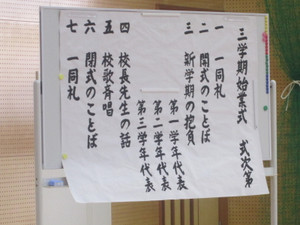 三学期始業式　式次第
一　一同礼
二　開式のことば
三　新学期の抱負
第一学年代表
第二学年代表
第三学年代表
四　校長先生の話
五　校歌斉唱
六　閉式のことば
七　一同礼